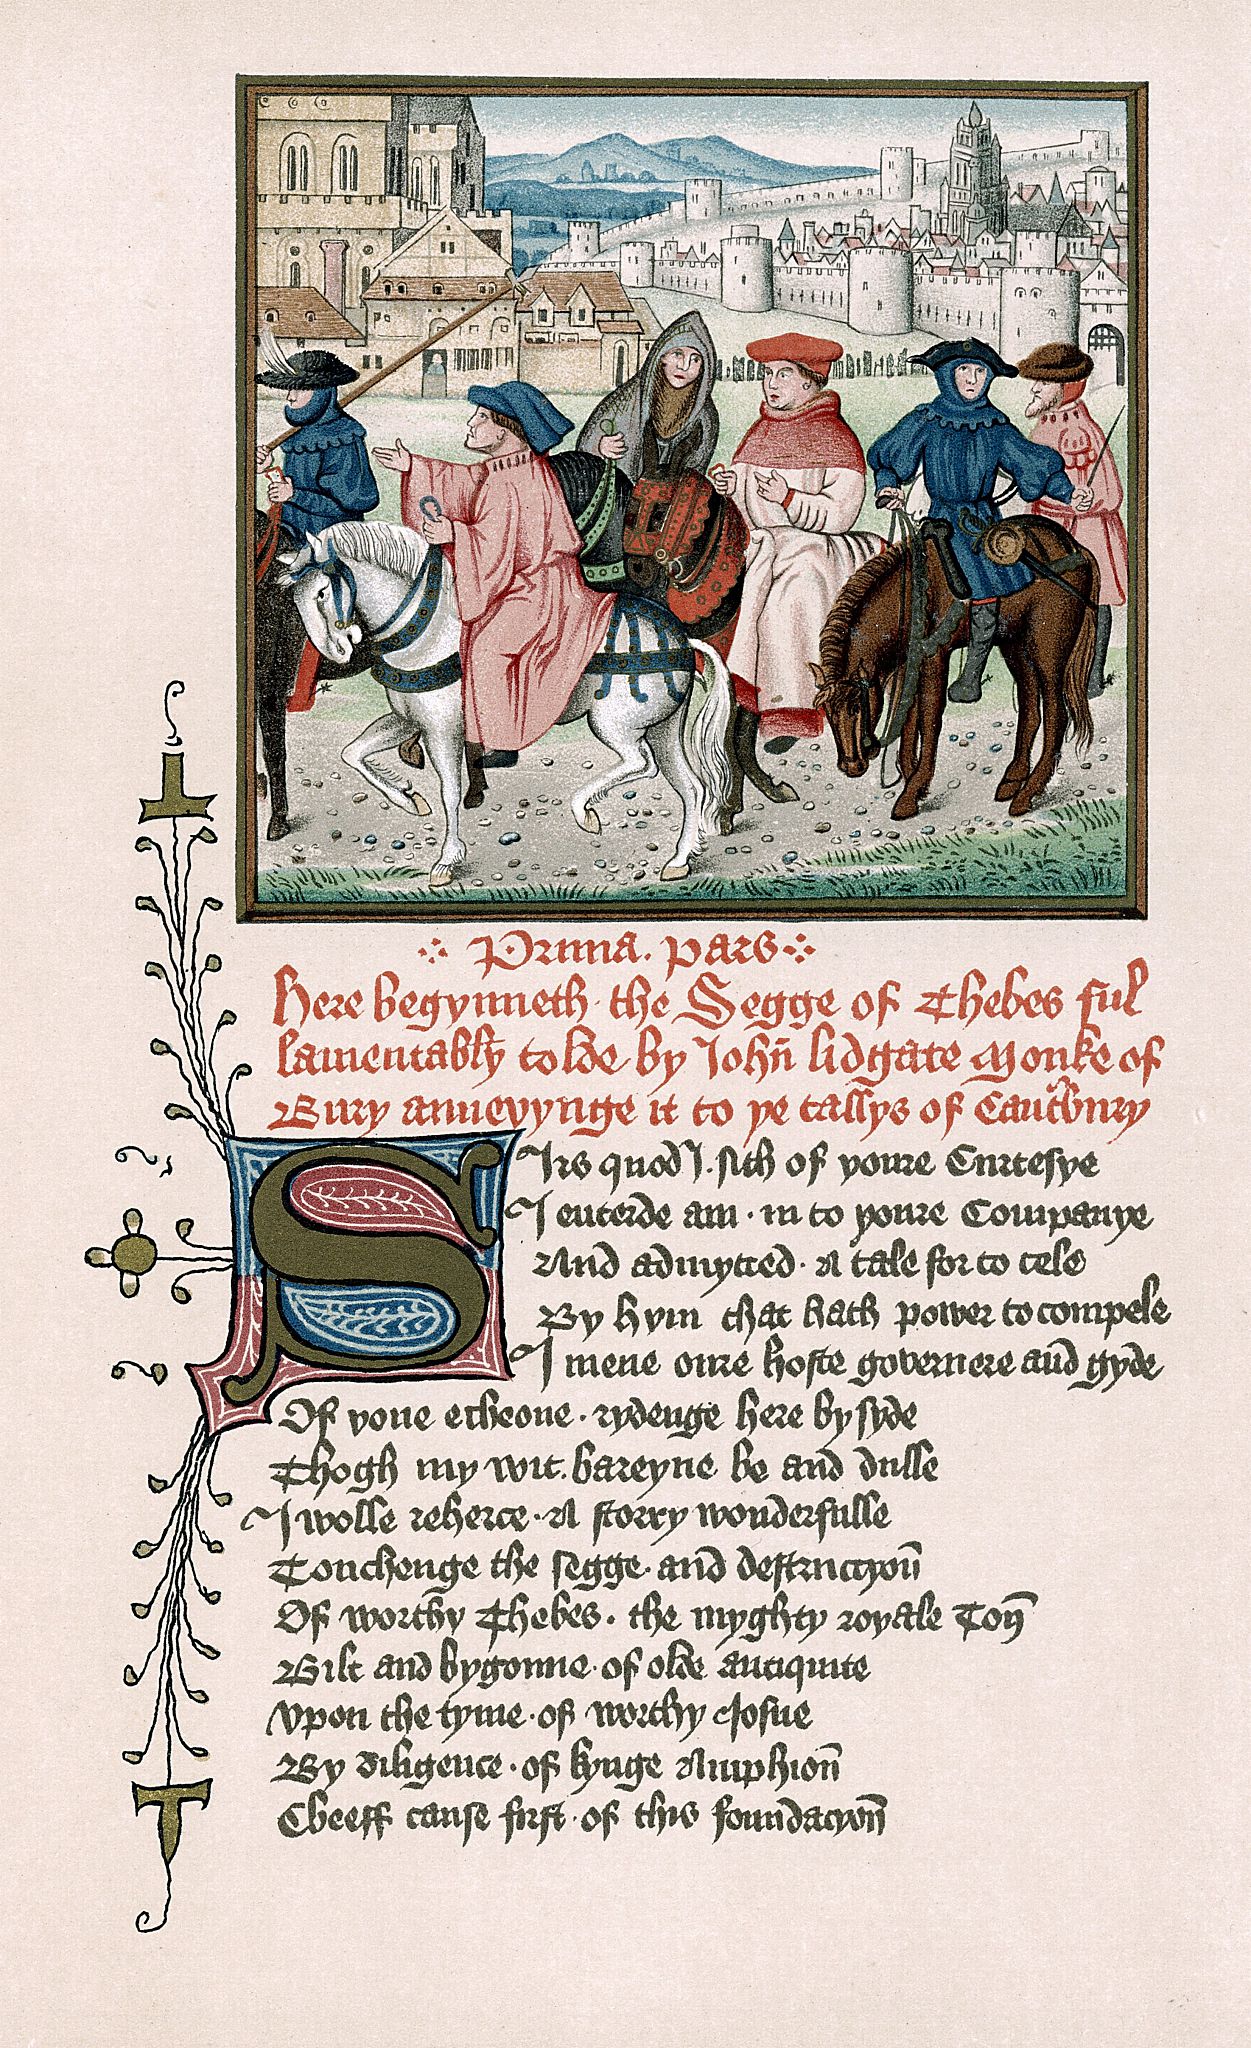 Prima. pars
Here begynneth the Segge of Thebes ful
lamentably tolde by Johñ lidgate Monke of
Bury annexynge it to ye tallys of Cantbury
Sirs quod I. sith of youre Curtesye
I enterde am. in to youre Companye
And admytted. A tale for to tele
By hym that hath power to compele
I mene oure hoste governere and gyde
Of yone echeone. rydenge here by syde
Thogh my wit. bareyne be and dulle
I wolle reherce. A storry wonderfulle
Touchenge the segge. and destruccyoñ
Of worthy Thebes. the myghty royale Toñ
Bilt and bygonne. of olde antiquite
Vpon the tyme. of worthy Josue
By diligence. of kynge Amphioñ
Cheeff cause first. of this foundacyoñ